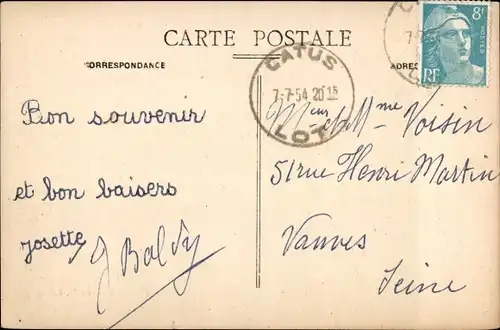 CARTE POSTALE
CORRESPONDANCE
Bon souvenir
et bon baisers
Josette J Baldy
CATUS
7-7-54 20 15
LOT
8F
POSTES
RF
Meur et Mme Voisin
51 rue Henri Martin
Vanves
Seine